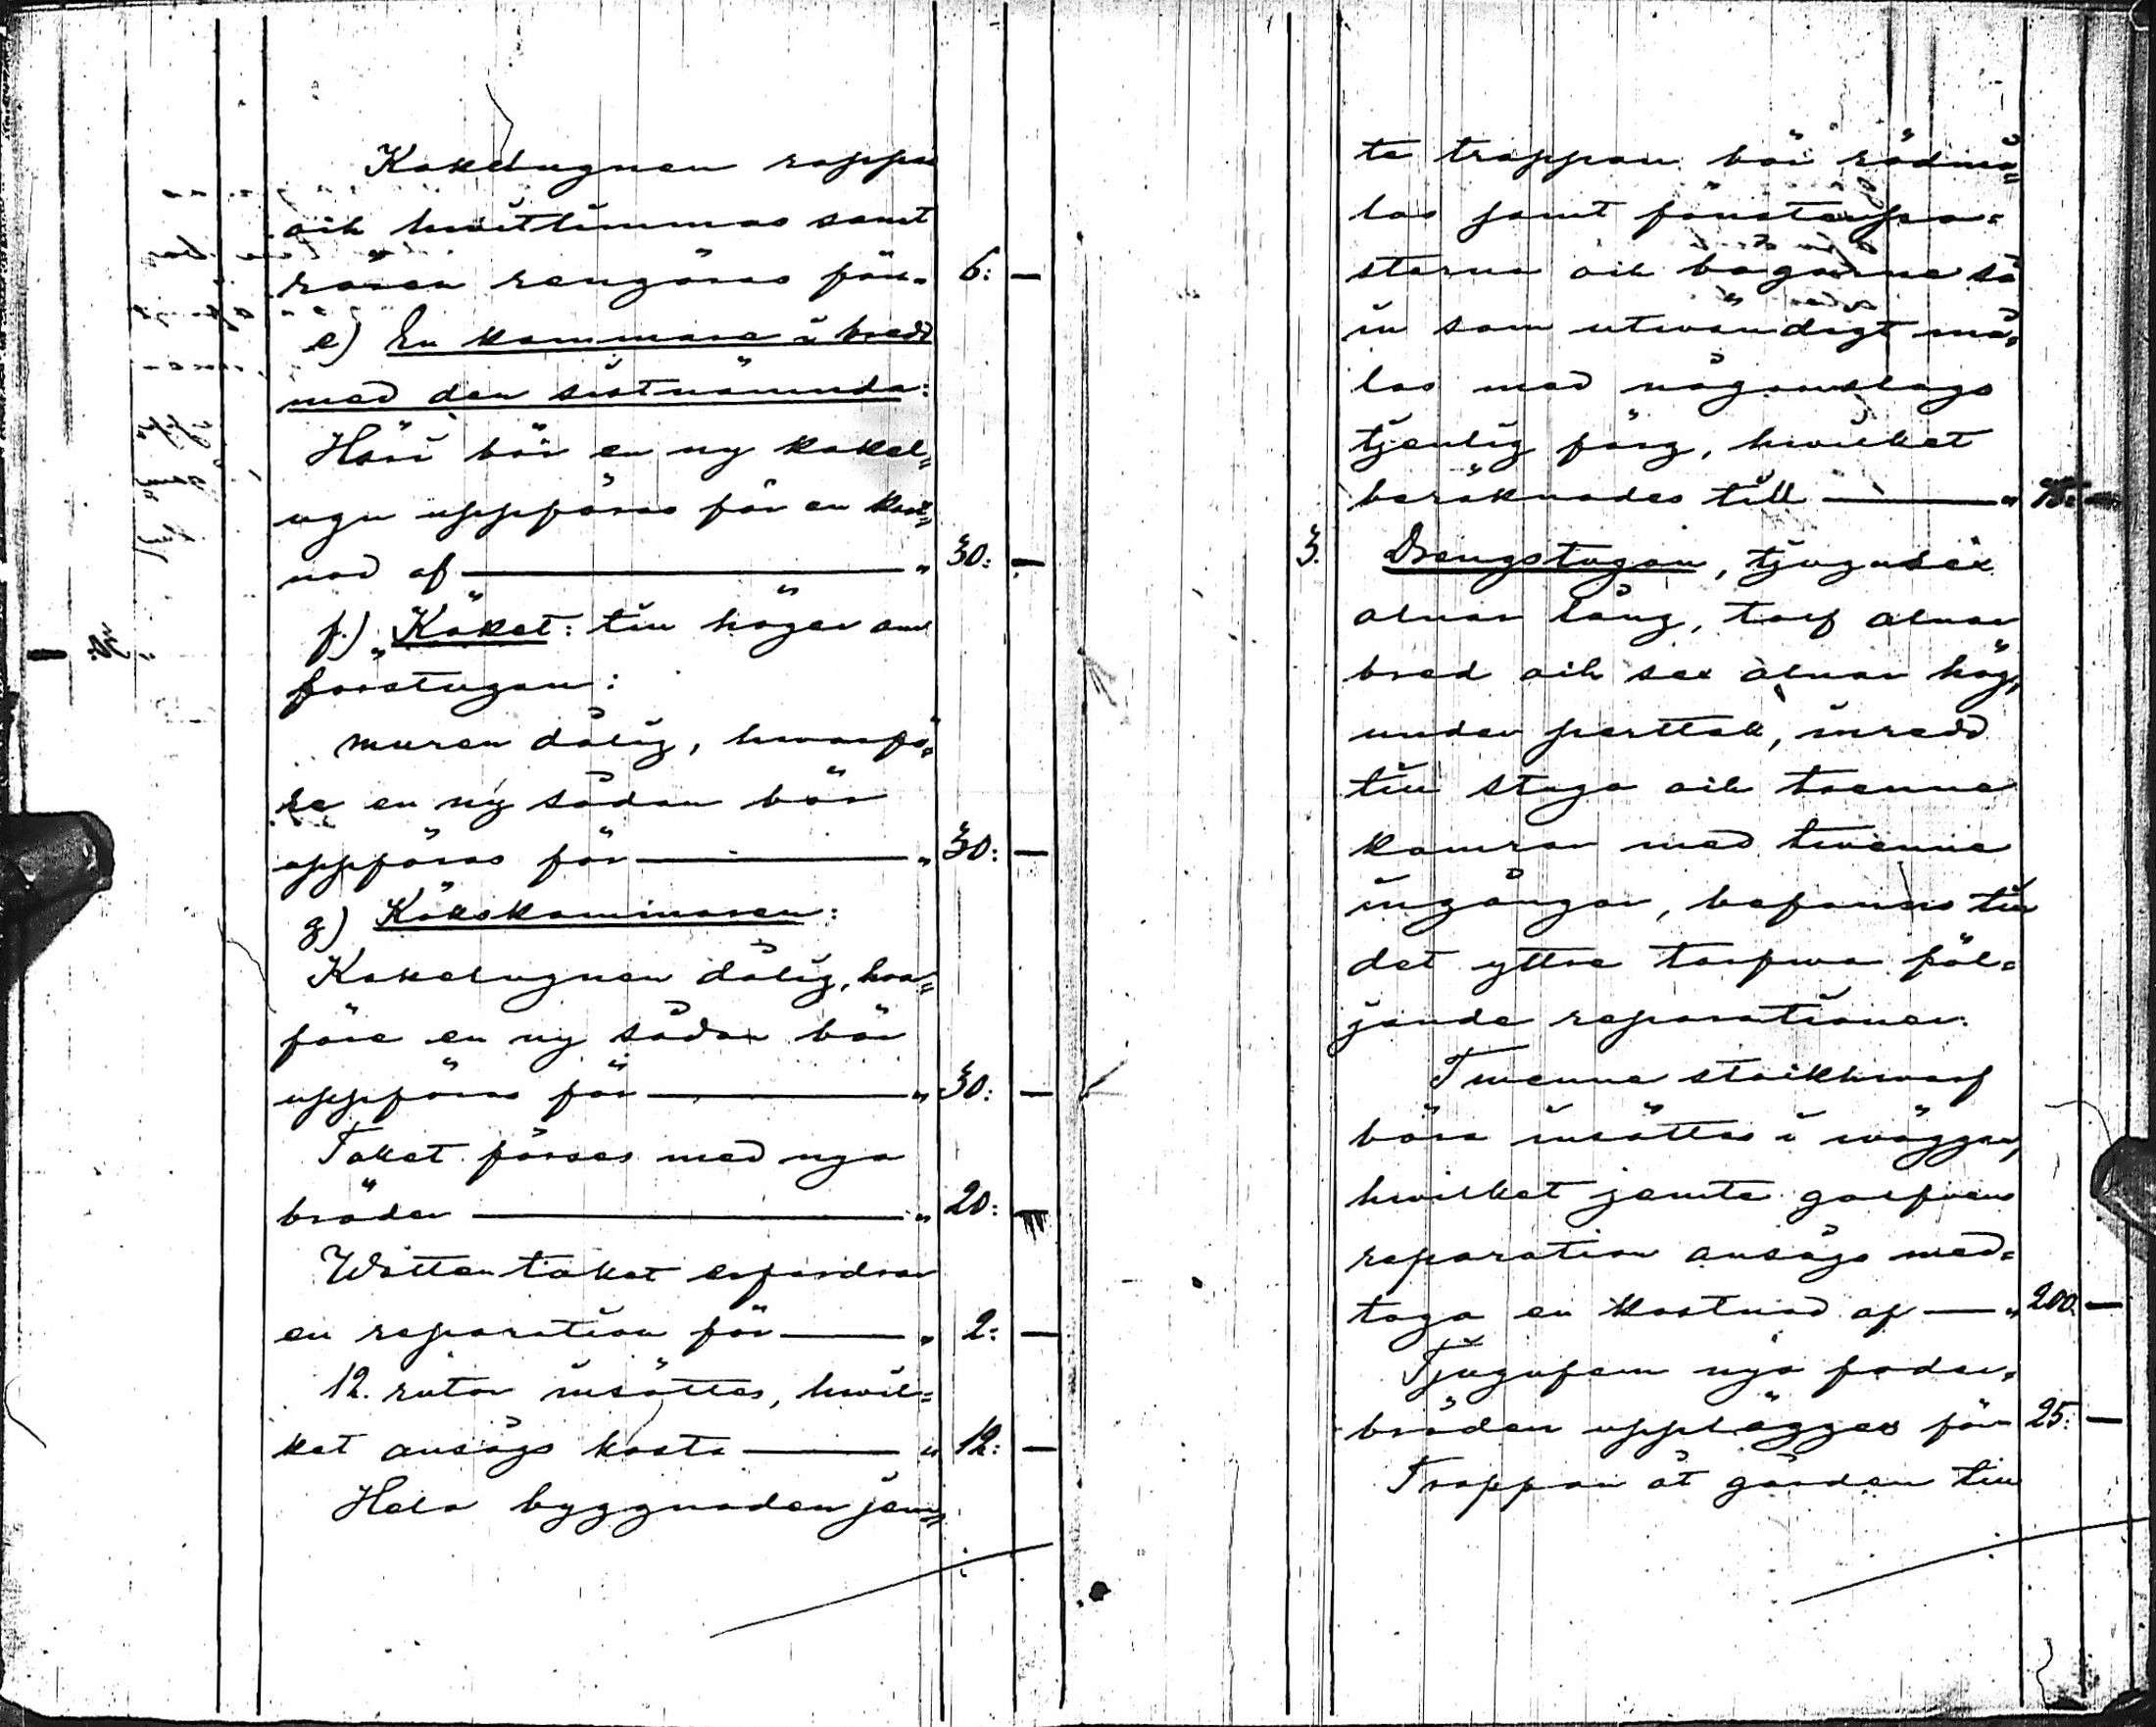 Kakelugnen rappas
och hvitlimmas samt
rören rengöras för. 6: —
e) En kammare i bredd
med den sistnämnda:
Häri bör en ny kakel=
ugn uppföras för en kost=
nad af — " 30: —
f.) Köket: till höger om
forstugan:
muren dålig, hvarfö=
re en ny sådan bör
uppföras för — " 30: —
g) Kökskammaren:
Kakelugnen dålig, hvar=
före en ny sådan bör
uppföras för — " 30: —
Taket förses med nya
bräder — " 20: —
Wattentaket erfordrar
en reparation för — " 2: —
12. rutor insättes, hvil=
ket ansågs kosta — " 12: —
Hela byggnaden jem=
te trappan bör rödmå=
las samt fönsterpo=
sterna och bågarne så
in som utvändigt må=
las med någonslags
tjenlig färg, hvilket
beräknades till — " 75: —
3. Drengstugan, tjugusex
alnar lång, tolf alnar
bred och sex alnar hög,
under perttak, inredd
till stuga och trenne
kamrar med tvenne
ingångar, befanns till
det yttre tarfva föl=
jande reparationer:
Twenne stockhvarf
böra insättas i väggen,
hvilket jemte golfvens
reparation ansågs med=
taga en kostnad af — " 200. —
Tjugufem nya foder=
bräden upplägges för 25: —
Trappan åt gården till